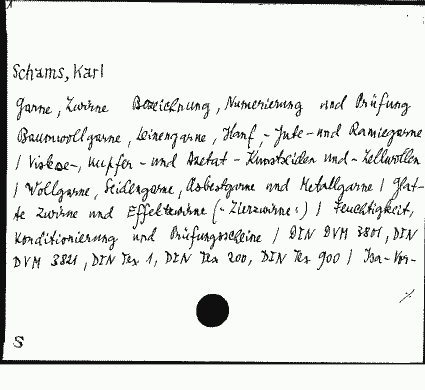 Schams, Karl
Garne, Zwirne Bezeichnung, Numerierung und Prüfung
Baumwollgarne, Leinengarne, Hanf-, Jute- und Ramiegarne
/ Viskose-, Kupfer- und Azetat-Kunstseiden und -Zellwollen
/ Wollgarne, Seidengarne, Asbestgarne und Metallgarne / Glat-
te Zwirne und Effektzwirne (-Zierzwirne-) / Feuchtigkeit,
Konditionierung und Prüfungsscheine / DIN DVM 3801, DIN
DVM 3821, DIN Tex 1, DIN Tex 200, DIN Tex 900 / Iso-Vor-
./.
S